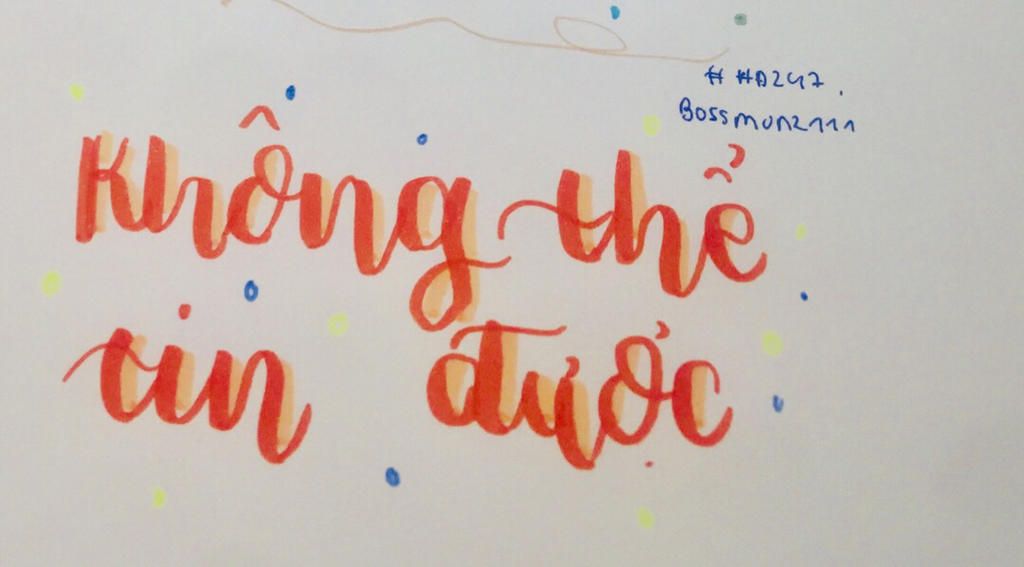 # HD247.
Bossmun2111
Không thể
tin được